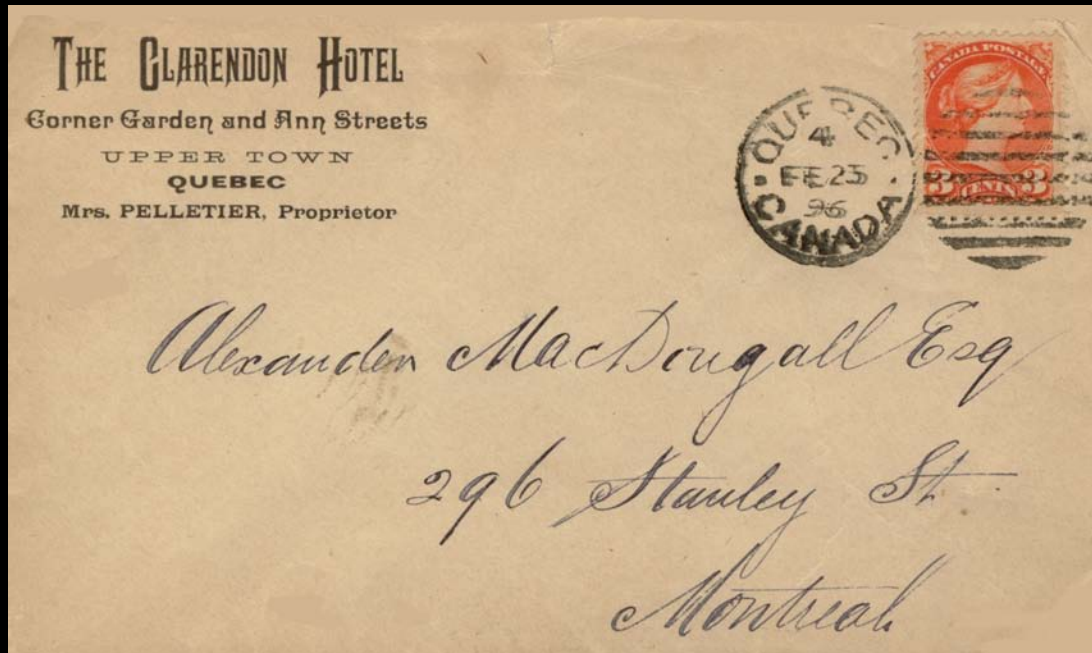 THE CLARENDON HOTEL
Corner Garden and Ann Streets
UPPER TOWN
QUEBEC
Mrs. PELLETIER, Proprietor
QUEBEC
4
FE 25
96
CANADA
CANADA POSTAGE
3 CENTS 3
Alexander MacDougall Esq
296 Stanley St
Montreal